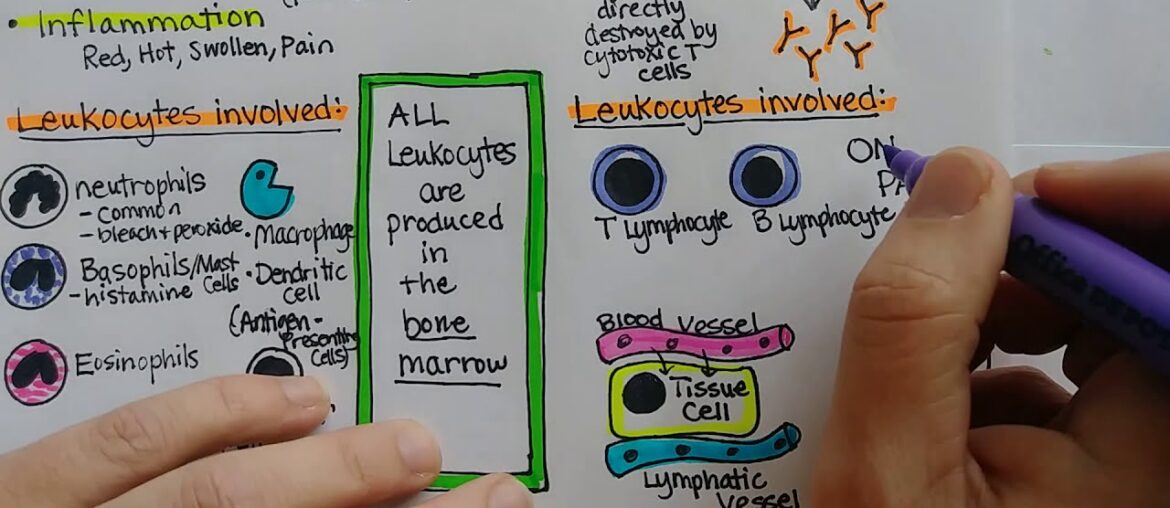 • Inflammation
Red, Hot, Swollen, Pain
Leukocytes involved:
neutrophils
- common
- bleach + peroxide
Basophils/Mast Cells
- histamine
Eosinophils
• Macrophage
• Dendritic
cell
(Antigen-
Presenting
Cells)
ALL
Leukocytes
are
produced
in
the
bone
marrow
directly
destroyed by
cytotoxic T
cells
Leukocytes involved:
T Lymphocyte
B Lymphocyte
ON
PA
Blood Vessel
Tissue
Cell
Lymphatic
Vessel
Office DEPOT